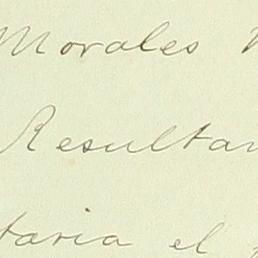 Morales
Resultan
taria el